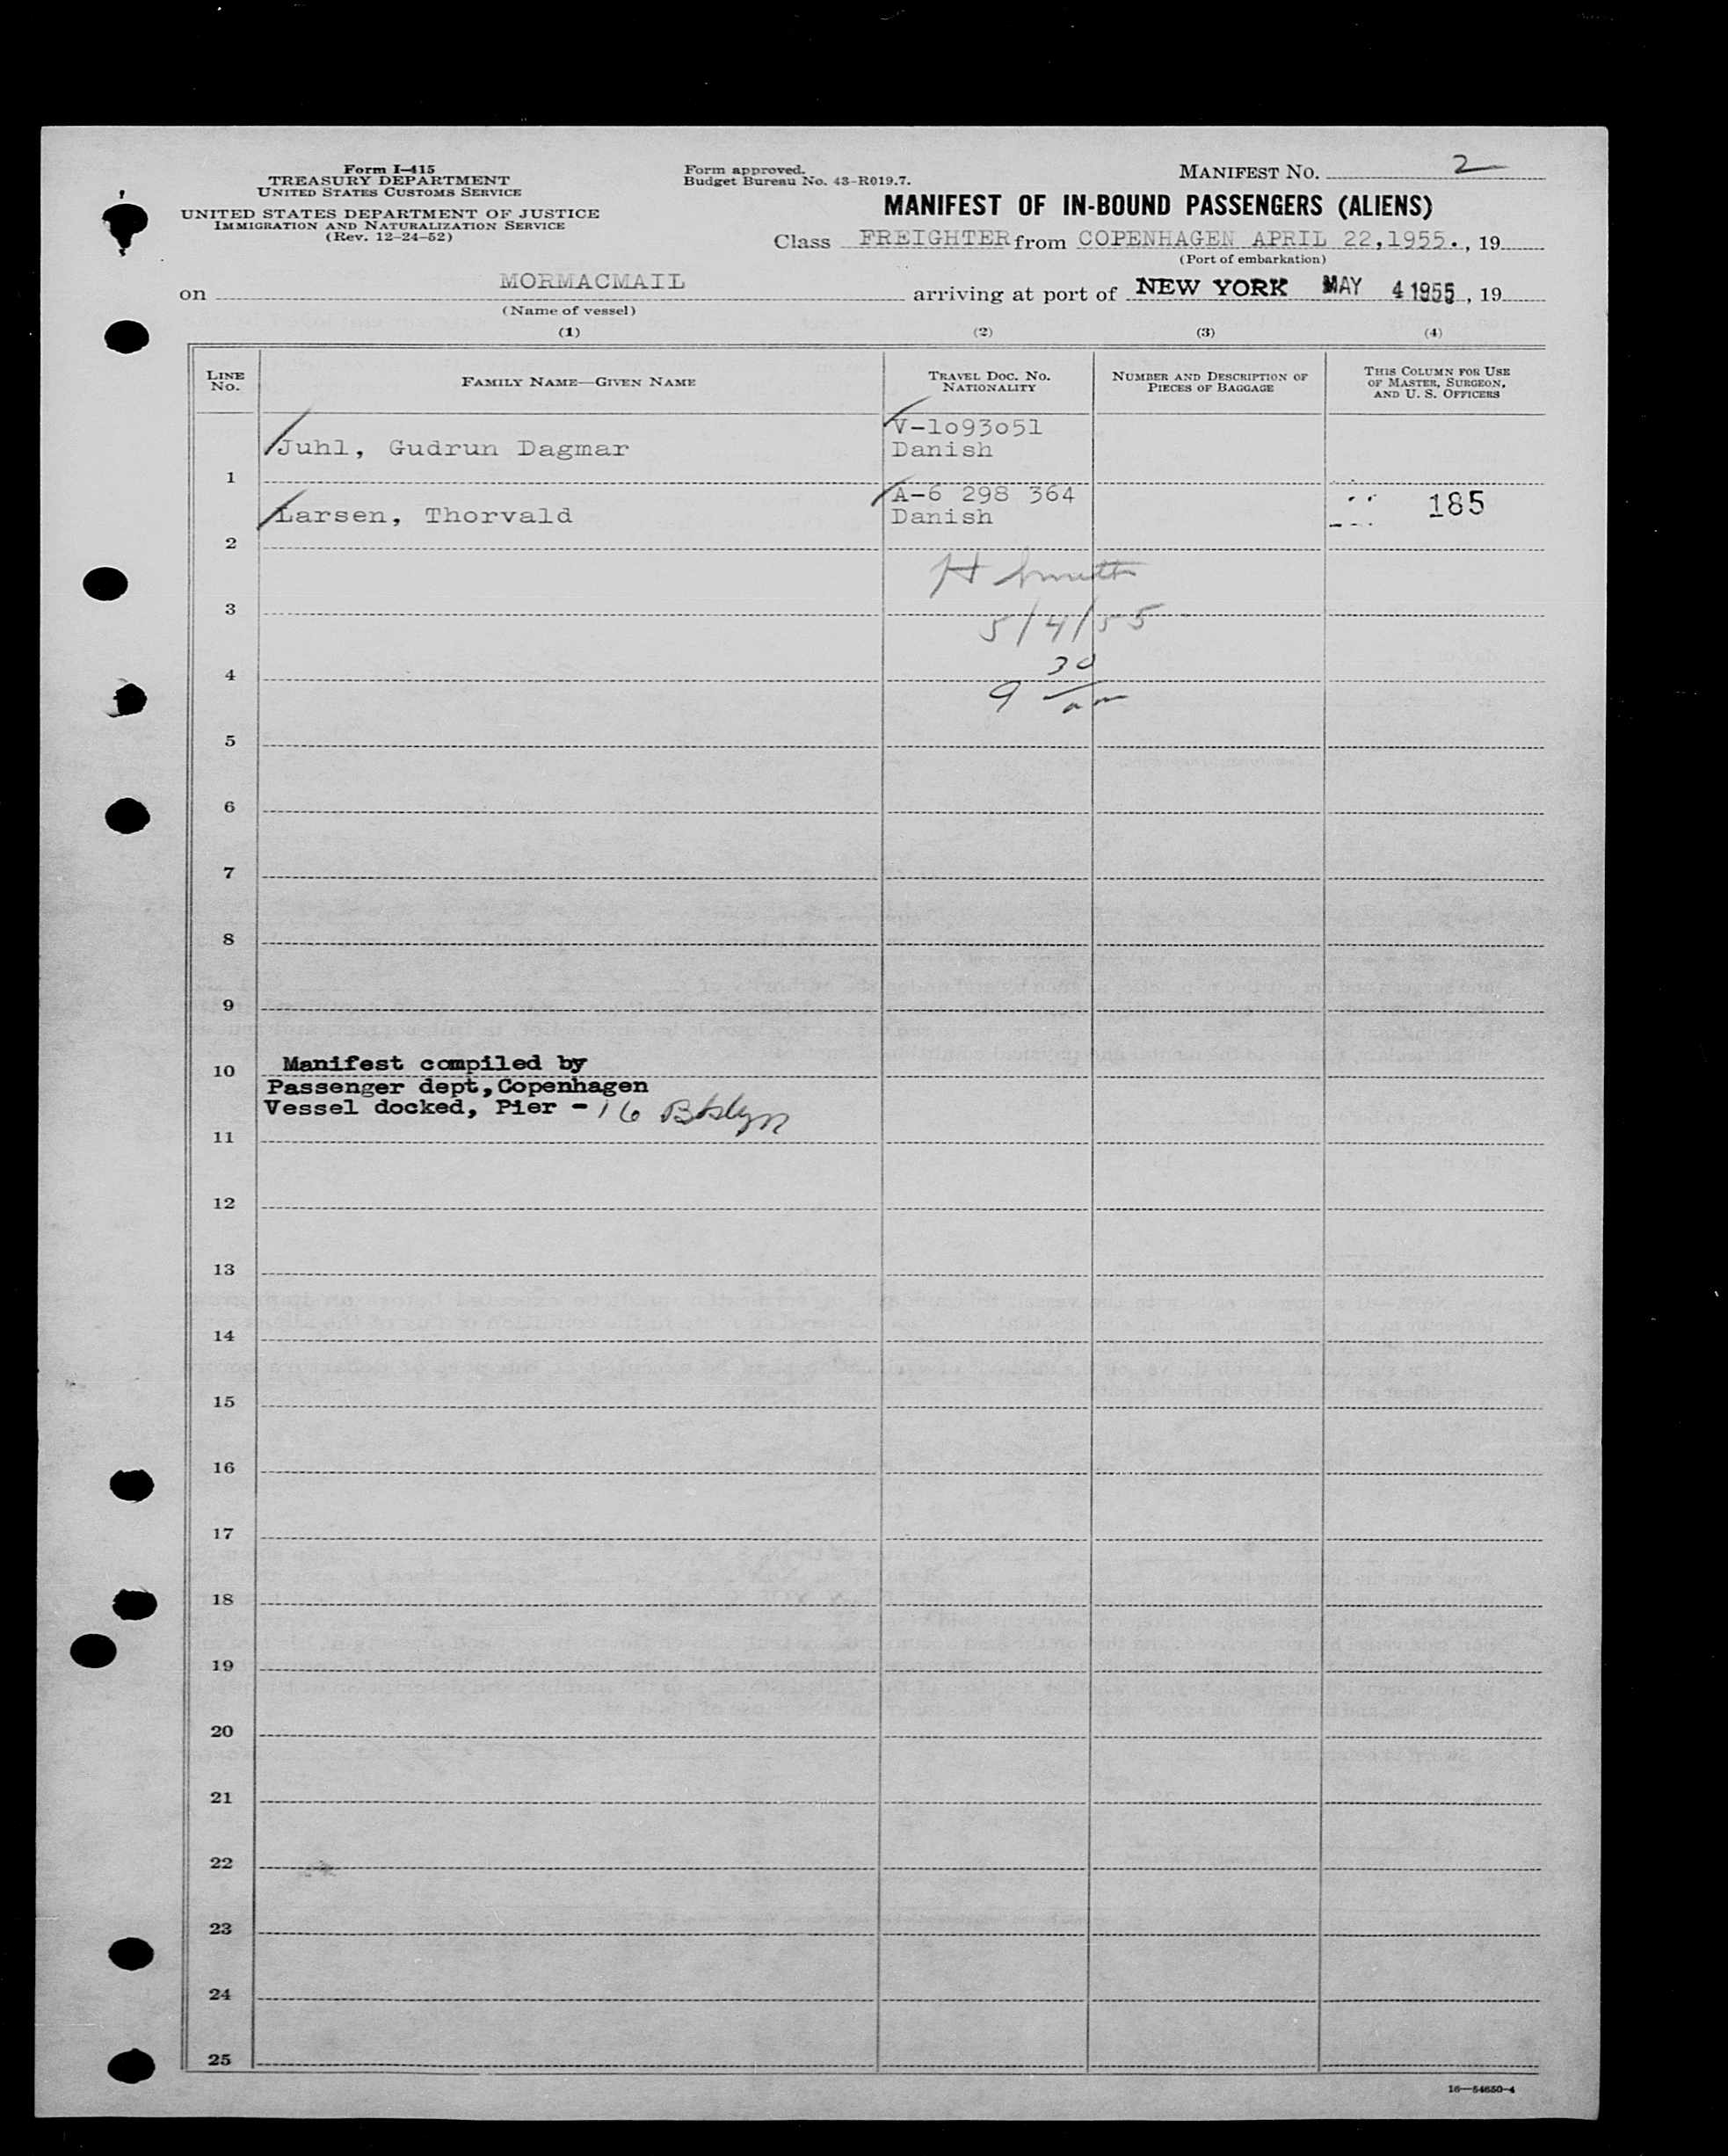 Form I-415
TREASURY DEPARTMENT
UNITED STATES CUSTOMS SERVICE
UNITED STATES DEPARTMENT OF JUSTICE
IMMIGRATION AND NATURALIZATION SERVICE
(Rev. 12-24-52)
Form approved.
Budget Bureau No. 43-R019.7.
MANIFEST NO. 2
MANIFEST OF IN-BOUND PASSENGERS (ALIENS)
Class FREIGHTER from COPENHAGEN APRIL 22,1955. , 19
(Port of embarkation)
on MORMACMAIL arriving at port of NEW YORK MAY 4 1955 , 19
(Name of vessel)
(1) (2) (3) (4)
LINE NO.
FAMILY NAME—GIVEN NAME
TRAVEL DOC. NO.
NATIONALITY
NUMBER AND DESCRIPTION OF
PIECES OF BAGGAGE
THIS COLUMN FOR USE
OF MASTER, SURGEON,
AND U. S. OFFICERS
V-1o93o51
Juhl, Gudrun Dagmar Danish
1
A-6 298 364 185
Larsen, Thorvald Danish
2
H Smith
3
5/4/55
4
9 30 am
5
6
7
8
9
Manifest compiled by
10
Passenger dept, Copenhagen
Vessel docked, Pier - 16 Bklyn
11
12
13
14
15
16
17
18
19
20
21
22
23
24
25
16—54650-4